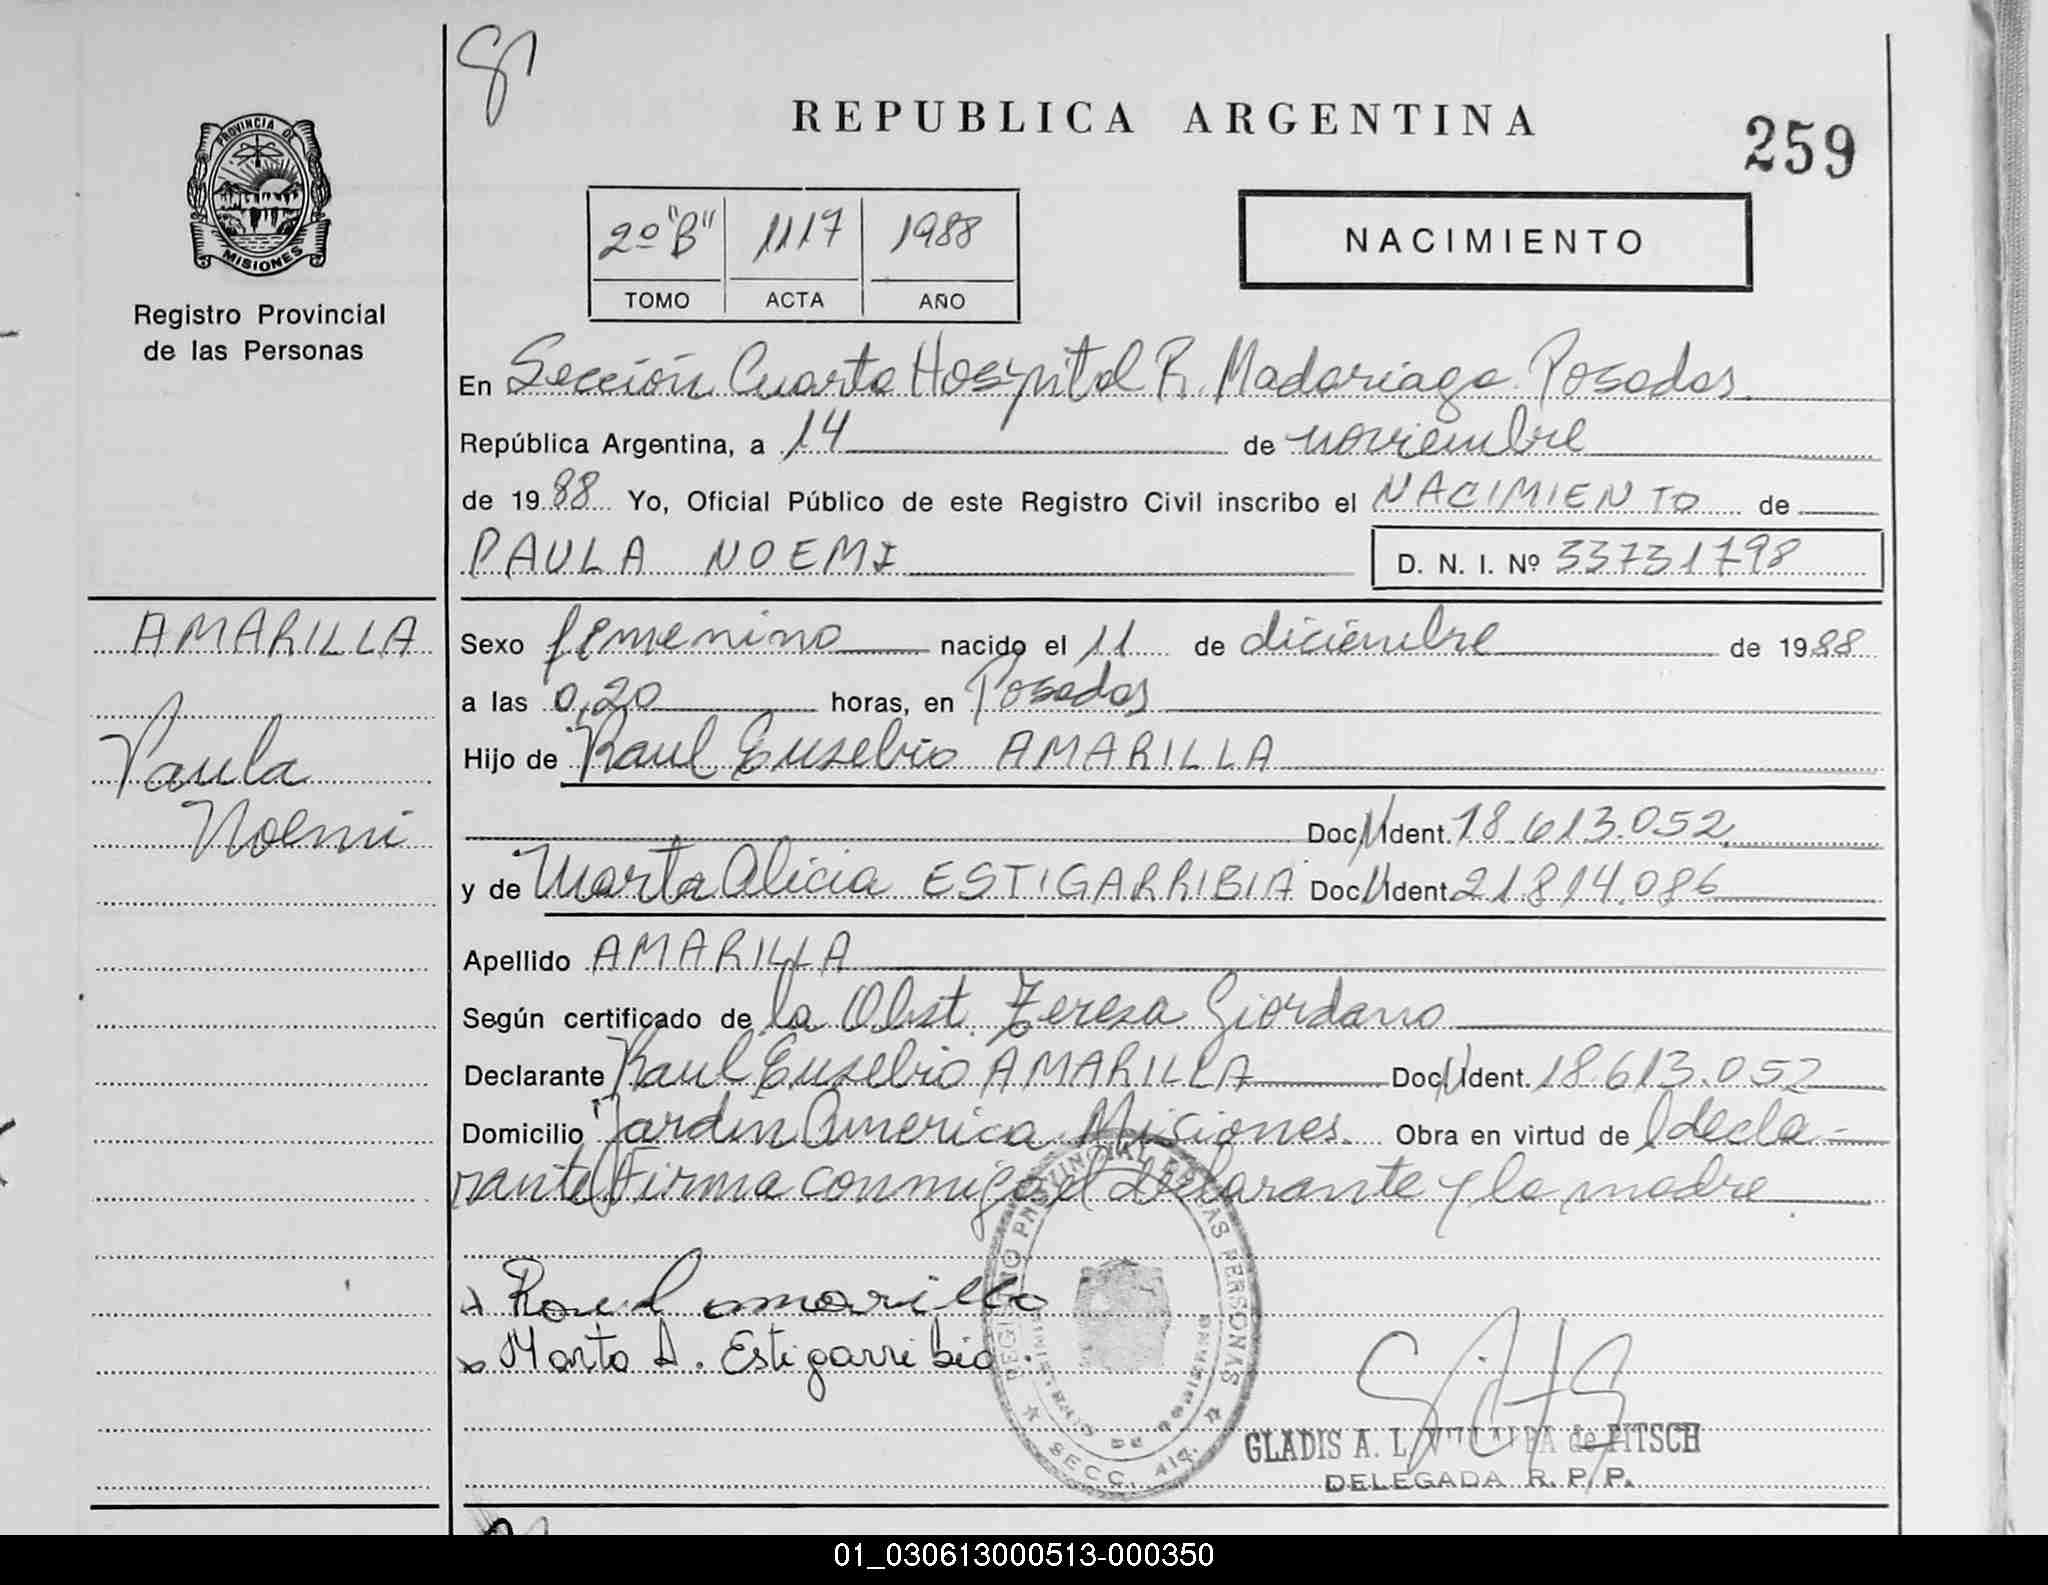 REPUBLICA ARGENTINA
259
PROVINCIA DE
MISIONES
Registro Provincial
de las Personas
2º "B" 1117 1988
TOMO ACTA AÑO
NACIMIENTO
En Sección Cuarta Hospital R. Madariaga. Posadas.
República Argentina, a 14 de noviembre
de 1988 Yo, Oficial Público de este Registro Civil inscribo el NACIMIENTO de
PAULA NOEMI D. N. I. Nº 33731798
AMARILLA
Paula
Noemi
Sexo femenino nacido el 11 de diciembre de 1988
a las 0,20 horas, en Posadas
Hijo de Raul Eusebio AMARILLA
Doc. Ident. 18.613.052
y de Marta Alicia ESTIGARRIBIA Doc. Ident. 21.814.086
Apellido AMARILLA
Según certificado de la Obst. Tereza Giordano
Declarante Raul Eusebio AMARILLA Doc. Ident. 18.613.052
Domicilio Jardin America Misiones. Obra en virtud de decla-
rante Firma conmigo el declarante y la madre
Raul amarilla
Marta A. Estigarribia
REGISTRO PROVINCIAL DE LAS PERSONAS
MINISTERIO DE GOBIERNO
SECC. 4ta.
GLADIS A. L. de PITSCH
DELEGADA R. P. P.
01_030613000513-000350